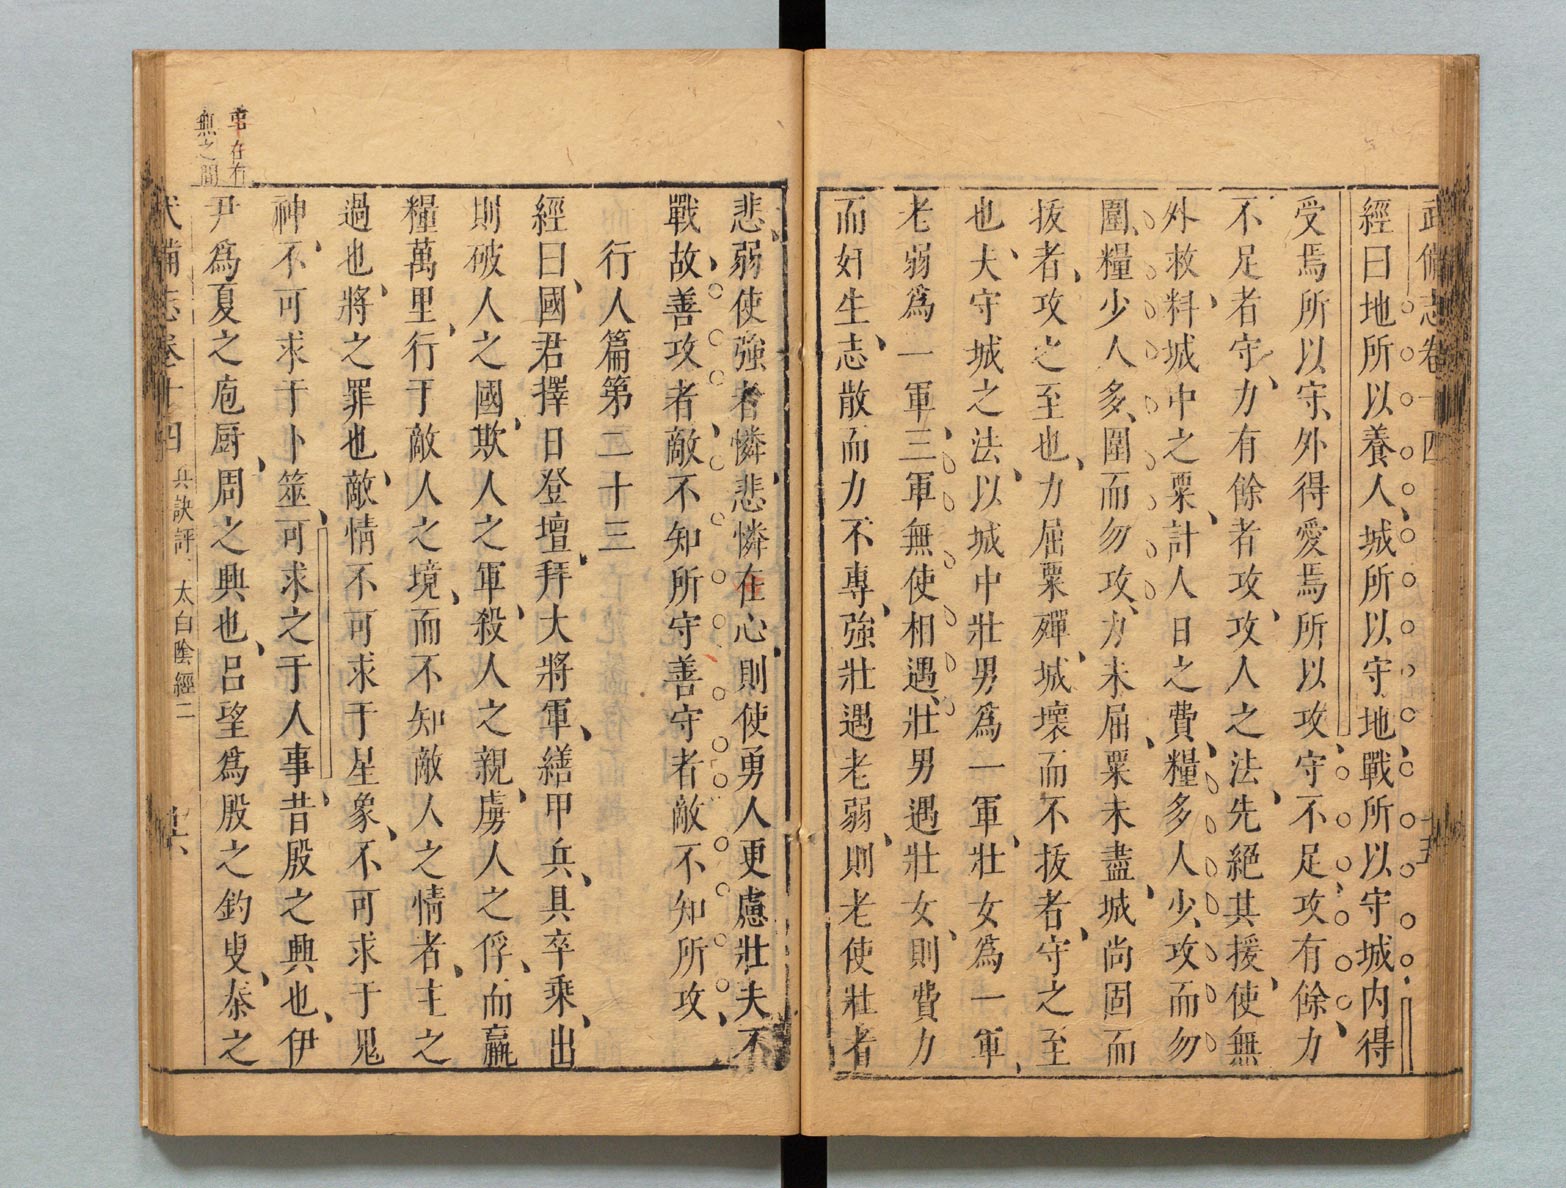 武備志卷十四
經曰地所以養人城所以守地戰所以守城内得
受焉所以守外得愛焉所以攻守不足攻有餘力
不足者守力有餘者攻攻人之法先絕其援使無
外救料城中之粟計人日之費糧多人少攻而勿
圍糧少人多圍而勿攻力未屈粟未盡城尚固而
拔者攻之至也力屈粟殫城壞而不拔者守之至
也夫守城之法以城中壯男爲一軍壯女爲一軍
老弱爲一軍三軍無使相遇壯男遇壯女則費力
而奸生志散而力不專強壯遇老弱則老使壯者
悲弱使強者憐悲憐在心則使勇人更慮壯夫不
戰故善攻者敵不知所守善守者敵不知所攻
行人篇第二十三
經曰國君擇日登壇拜大將軍繕甲兵具卒乘出
則破人之國欺人之軍殺人之親虜人之俘而贏
糧萬里行于敵人之境而不知敵人之情者主之
過也將之罪也敵情不可求于星象不可求于鬼
神不可求于卜筮可求之于人事昔殷之興也伊
尹爲夏之庖厨周之興也呂望爲殷之釣叟秦之
事在有
無之間
武備志卷十四 兵訣評 太白陰經二